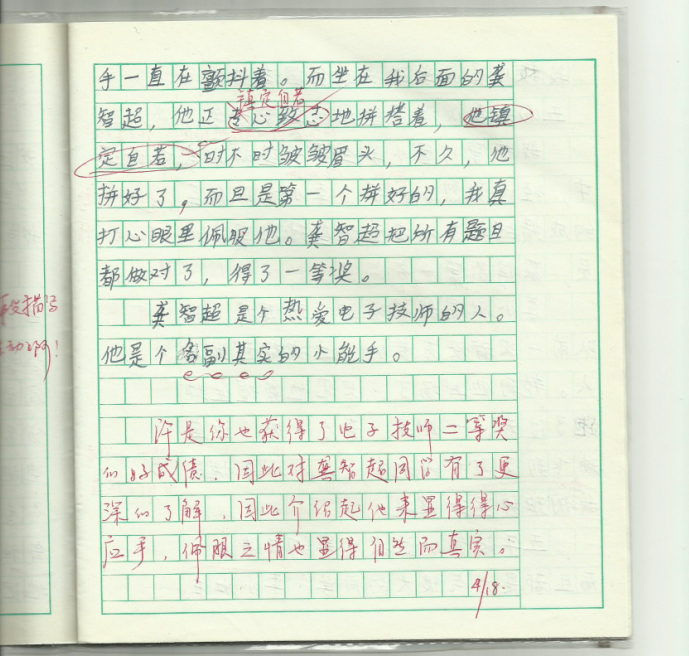 手一直在颤抖着。而坐在我后面的龚
镇定自若
智超，他正专心致志地拼搭着，他镇
定自若，时不时皱皱眉头，不久，他
拼好了，而且是第一个拼好的，我真
打心眼里佩服他。龚智超把所有题目
都做对了，得了一等奖。
龚智超是个热爱电子技师的人。
他是个名副其实的小能手。
许是你也获得了电子技师二等奖
的好成绩，因此对龚智超同学有了更
深的了解，因此介绍起他来显得得心
应手，佩服之情也显得自然而真实。
4/18.